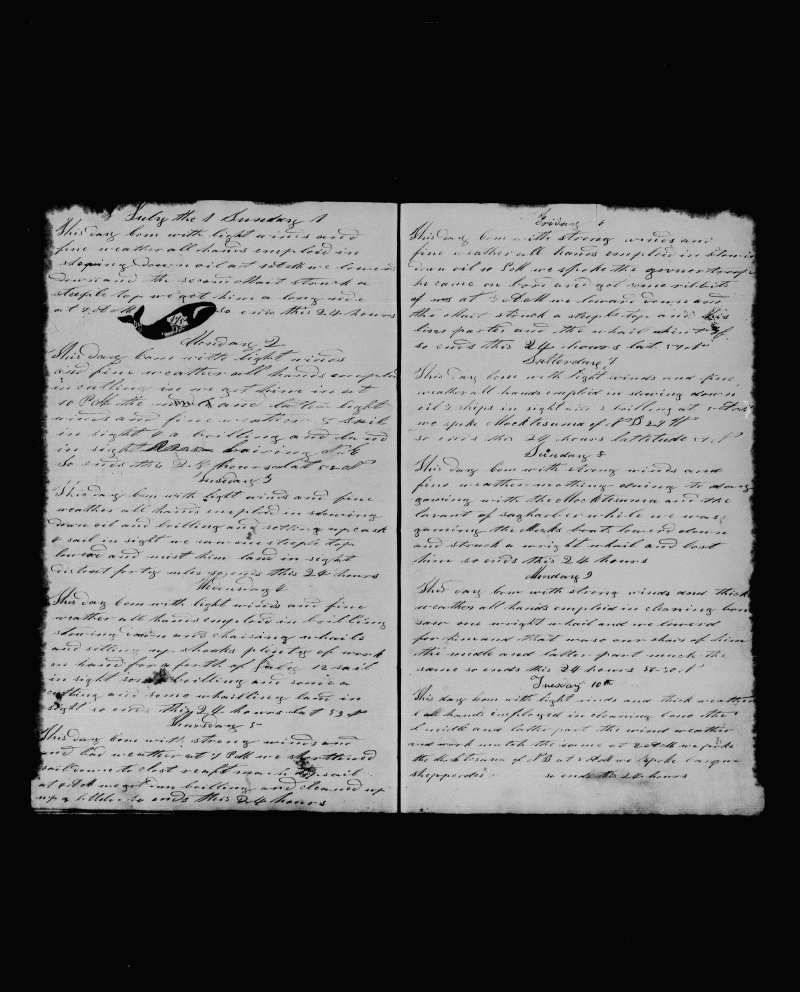 July the 1 Sunday 1
This day com with light winds and
fine weather all hands emploid in
stoawing down oil at 12 AM we lowerd
down and the second Mait struck a
steeple top we got him a long side
at 7 so ends this 24 hours
Monday 2
This day com with light winds
and fine weather all hands emploid
in cutting in we got him in at
10 PM the midle and latter light
winds and fine weather 5 sail
in sight a boilling and land
in sight bairing
So ends this 24 hours lat 52 N
Tuesday 3
This day com with light winds and fine
weather all hands emploid in stowing
down oil and boilling and setting up cask
4 sail in sight we saw one steeple top
lowerd and mist him land in sight
distent forty miles so ends this 24 hours
Wdensday 4
This day com with light winds and fine
weather all hands emploid in boilling
stowing down and chaising whails
and setting up shooks plenty of work
on hand for a forth of July 12 sail
in sight som boilling and som a
cutting and some whailling land in
sight so ends this 24 hours lat 53 N
Thursday 5
This day com with strong winds and
and bad weather at 7 PM we shortened
sail down to clost reaft main top sail
at 6 AM we got don boilling and cleaned up
up a littel so ends this 24 hours
Friday 6
This day com with strong winds and
fine weather all hands emploid in stowing
down oil 10 PM we spoke the govner troup
he came on bord and got some ribbits
of us at 3 AM we lowerd down and
the Mait struck a steeple top and his
lines parted and the whail went of
so ends this 24 hours lat 57 N
Satterday 7
This day com with light winds and fine
weather all hands emploid in stowing down
oil 3 ships in sight and 2 boilling at
we spoke Mocktesuma of NB
so ends this 24 hours lattitude 57 N
Sunday 8
This day com with strong winds and
fine weather nothing doing to day
gaming with the Mocktesuma and the
lavant of sagharber while we was
gaming the Mocks boats lowerd down
and struck a wright whail and lost
him so ends this 24 hours
Monday 9
This day com with strong winds and thick
weather all hands emploid in cleaning bone
saw one wright whail and we lowerd
for him and that was our shair of him
the midle and latter part much the
same so ends this 24 hours 58:30 N
Tuesday 10th
This day com with light winds and thick weather
all hands imployed in cleaning bone the
midle and latter part the wind weather
and work mutch the same at 2 PM we spoke
the Mocktesuma of NB at 2 AM we spoke barque
shepperdes so ends this 24 hours